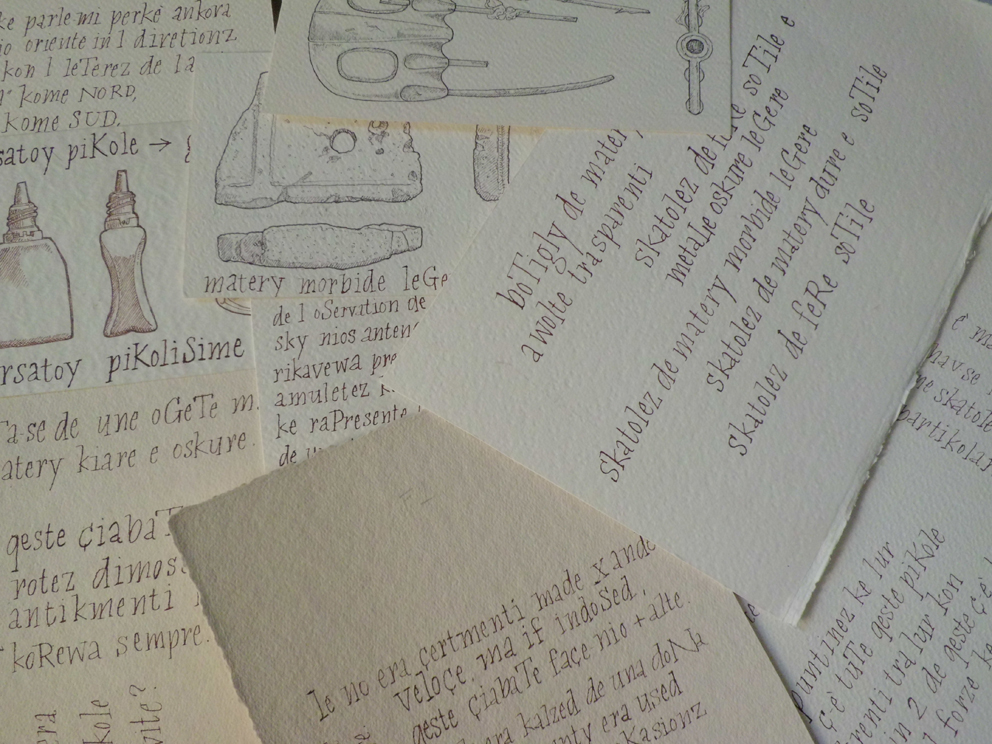 ke parle mi perké ankora
io oriente in 1 diretionz
kon 1 leTerez de la
kome NORD,
kome SUD.
satoy piKole →
rsatoy piKoliSime
matery morbide leGe
de l oServation de
sky nios anten
rikavewa pre
amuletez
ke raPresente
de
Ta-se de une oGeTe m.
atery kiare e oskure.
qeste çiabaT
rotez dimos
antikmenti
koRewa sempre.
era
kole
vite?
boTigly de mater
awolte trasparenti
skatolez de luKe soTile e
metaLe oskure leGere
skatolez de matery morbide leGere
skatolez de matery dure e soTile
skatolez de feRe soTile
le no era çertmenti made x ande
veloçe, ma if indoSed,
qeste çiabaTe façe nio + alte.
era kalzed de una doNa
nty era used
Kasionz
e
nav se
ne skatole
partikolar
puntinez ke lur
ç'è tuTe qeste piKole
irenti tra lur kon
in 2 de qeste
forze ke